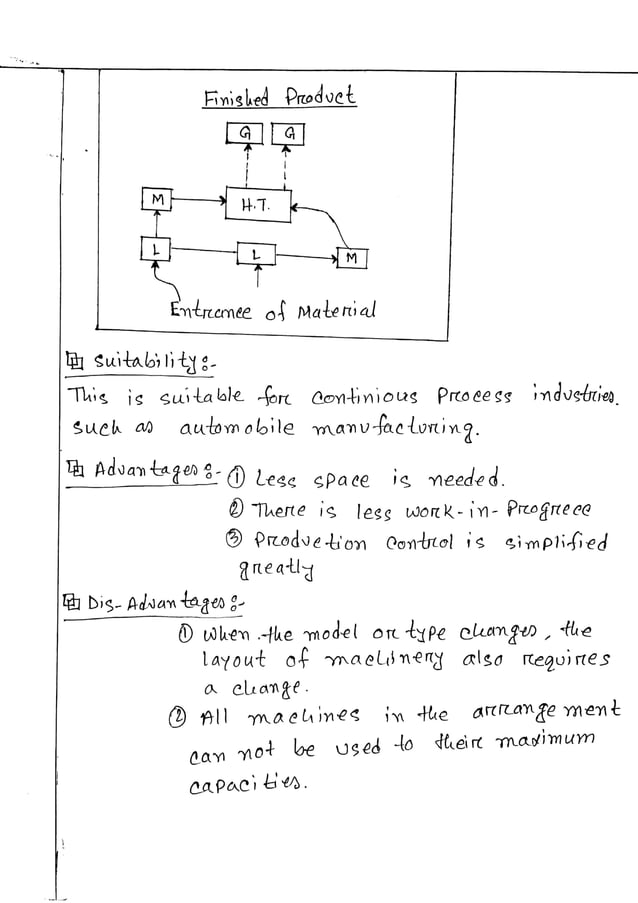 Finished Product
G G
M H.T.
L L M
Entrance of Material
Suitability:-
This is suitable for continious Process industries.
such as automobile manufacturing.
Advantages:- ① Less space is needed.
② There is less work-in-Progrece
③ Production control is simplified
greatly
Dis-Advantages:-
① When the model or type changes, the
layout of machinery also requires
a change.
② All machines in the arrangement
can not be used to their maximum
capacities.